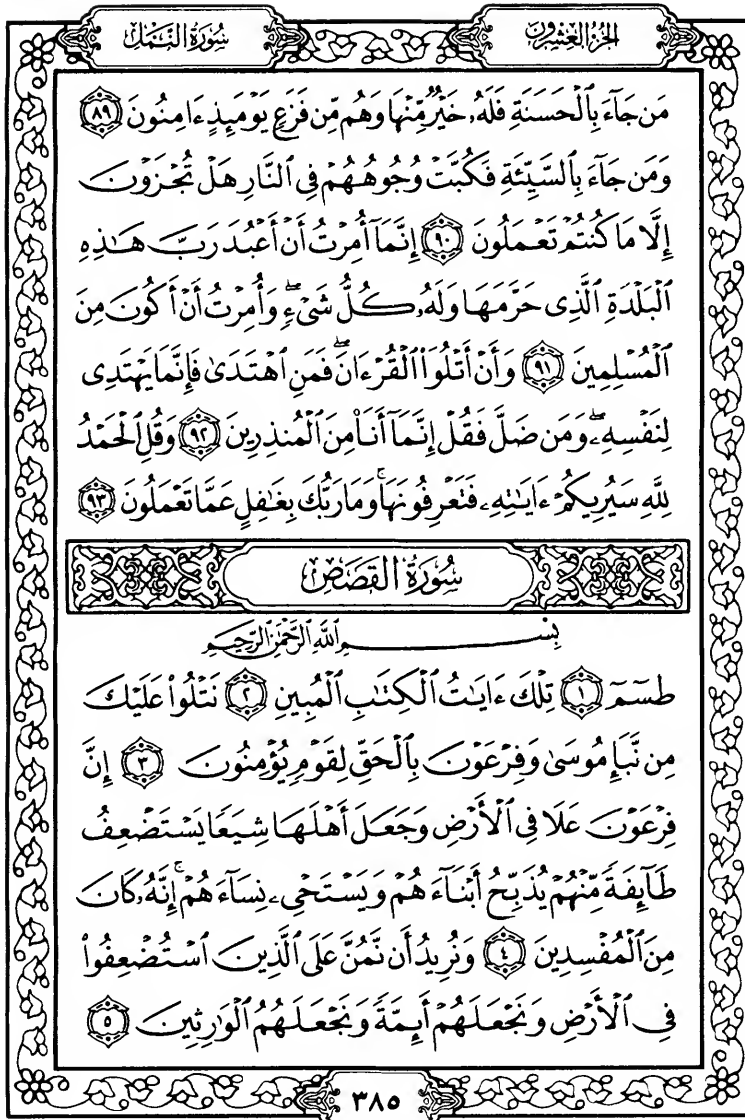 سُورَةُ النَّمْلِ
الجُزْءُ العِشْرُونَ
مَن جَآءَ بِٱلْحَسَنَةِ فَلَهُۥ خَيْرٌ مِّنْهَا وَهُم مِّن فَزَعٍ يَوْمَئِذٍ ءَامِنُونَ ٨٩
وَمَن جَآءَ بِٱلسَّيِّئَةِ فَكُبَّتْ وُجُوهُهُمْ فِى ٱلنَّارِ هَلْ تُجْزَوْنَ
إِلَّا مَا كُنتُمْ تَعْمَلُونَ ٩٠ إِنَّمَآ أُمِرْتُ أَنْ أَعْبُدَ رَبَّ هَـٰذِهِ
ٱلْبَلْدَةِ ٱلَّذِى حَرَّمَهَا وَلَهُۥ كُلُّ شَىْءٍ ۖ وَأُمِرْتُ أَنْ أَكُونَ مِنَ
ٱلْمُسْلِمِينَ ٩١ وَأَنْ أَتْلُوَا۟ ٱلْقُرْءَانَ ۖ فَمَنِ ٱهْتَدَىٰ فَإِنَّمَا يَهْتَدِى
لِنَفْسِهِۦ ۖ وَمَن ضَلَّ فَقُلْ إِنَّمَآ أَنَا۠ مِنَ ٱلْمُنذِرِينَ ٩٢ وَقُلِ ٱلْحَمْدُ
لِلَّهِ سَيُرِيكُمْ ءَايَـٰتِهِۦ فَتَعْرِفُونَهَا ۚ وَمَا رَبُّكَ بِغَـٰفِلٍ عَمَّا تَعْمَلُونَ ٩٣
سُورَةُ القَصَصِ
بِسْمِ ٱللَّهِ ٱلرَّحْمَـٰنِ ٱلرَّحِيمِ
طسٓمٓ ١ تِلْكَ ءَايَـٰتُ ٱلْكِتَـٰبِ ٱلْمُبِينِ ٢ نَتْلُوا۟ عَلَيْكَ
مِن نَّبَإِ مُوسَىٰ وَفِرْعَوْنَ بِٱلْحَقِّ لِقَوْمٍ يُؤْمِنُونَ ٣ إِنَّ
فِرْعَوْنَ عَلَا فِى ٱلْأَرْضِ وَجَعَلَ أَهْلَهَا شِيَعًا يَسْتَضْعِفُ
طَآئِفَةً مِّنْهُمْ يُذَبِّحُ أَبْنَآءَهُمْ وَيَسْتَحْىِۦ نِسَآءَهُمْ ۚ إِنَّهُۥ كَانَ
مِنَ ٱلْمُفْسِدِينَ ٤ وَنُرِيدُ أَن نَّمُنَّ عَلَى ٱلَّذِينَ ٱسْتُضْعِفُوا۟
فِى ٱلْأَرْضِ وَنَجْعَلَهُمْ أَئِمَّةً وَنَجْعَلَهُمُ ٱلْوَٰرِثِينَ ٥
٣٨٥